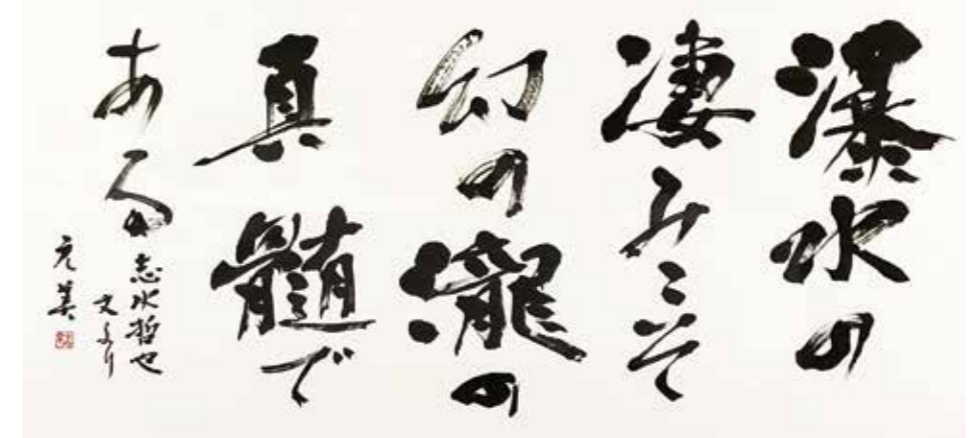 瀑水の
凄みこそ
幻の瀧の
真髄で
ある
志水哲也
文より